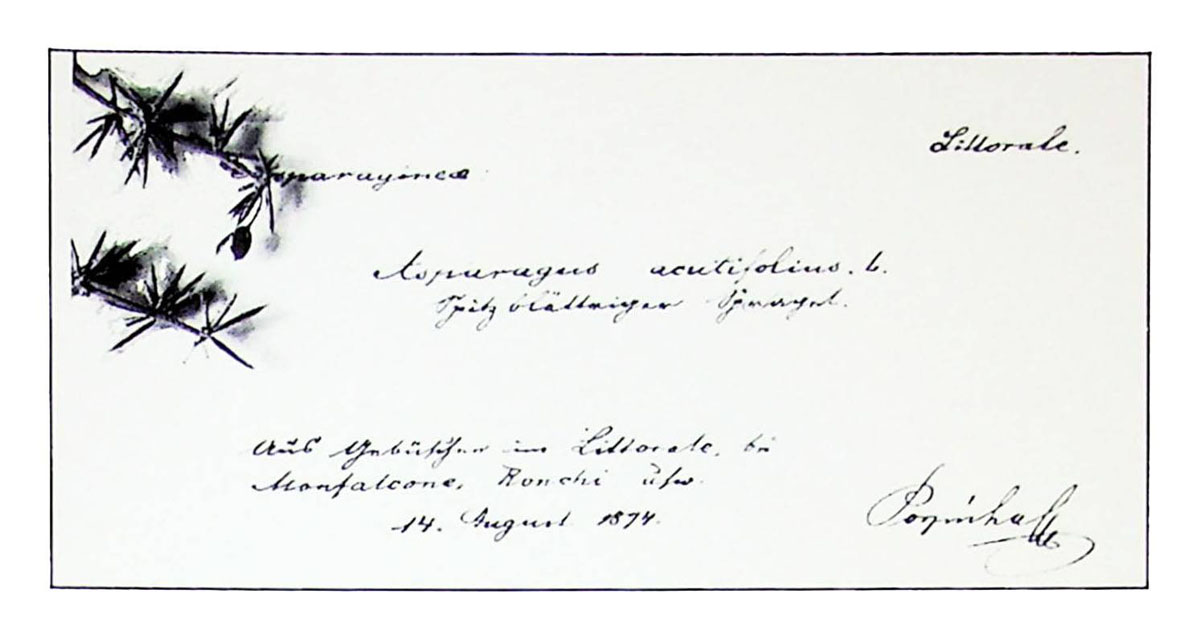 Littorale.
Asparagus acutifolius. L.
Spitzblättriger Spargel.
Aus Gebüschen im Littorale, bei
Monfalcone, Ronchi usw.
14. August